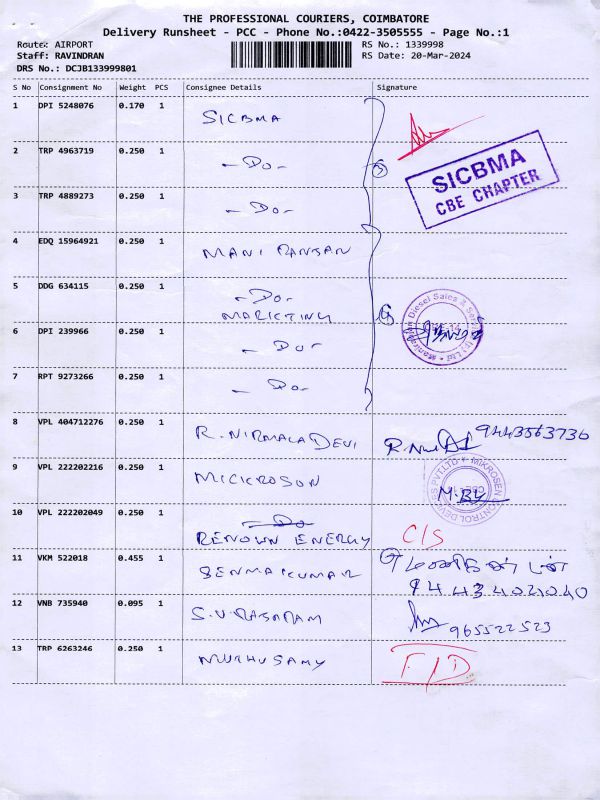 THE PROFESSIONAL COURIERS, COIMBATORE
Delivery Runsheet - PCC - Phone No.:0422-3505555 - Page No.:1
Route: AIRPORT RS No.: 1339998
Staff: RAVINDRAN RS Date: 20-Mar-2024
DRS No.: DCJB133999801
S No Consignment No Weight PCS Consignee Details Signature
1 DPI 5248076 0.170 1 SICBMA
2 TRP 4963719 0.250 1 -Do-
SICBMA
CBE CHAPTER
3 TRP 4889273 0.250 1 -Do-
4 EDQ 15964921 0.250 1 MANI RANGAN
5 DDG 634115 0.250 1 -Do-
MARKETING
6 DPI 239966 0.250 1 -Do-
7 RPT 9273266 0.250 1 -Do-
8 VPL 404712276 0.250 1 R. NIRMALA DEVI 9443563736
9 VPL 222202216 0.250 1 MICKROSON
10 VPL 222202049 0.250 1 RENOWN ENERGY C/S
11 VKM 522018 0.455 1 SENMAKUMAR
9443402040
12 VNB 735940 0.095 1 S.V. RAJARAM 965522523
13 TRP 6263246 0.250 1 MUTHUSAMY F/D